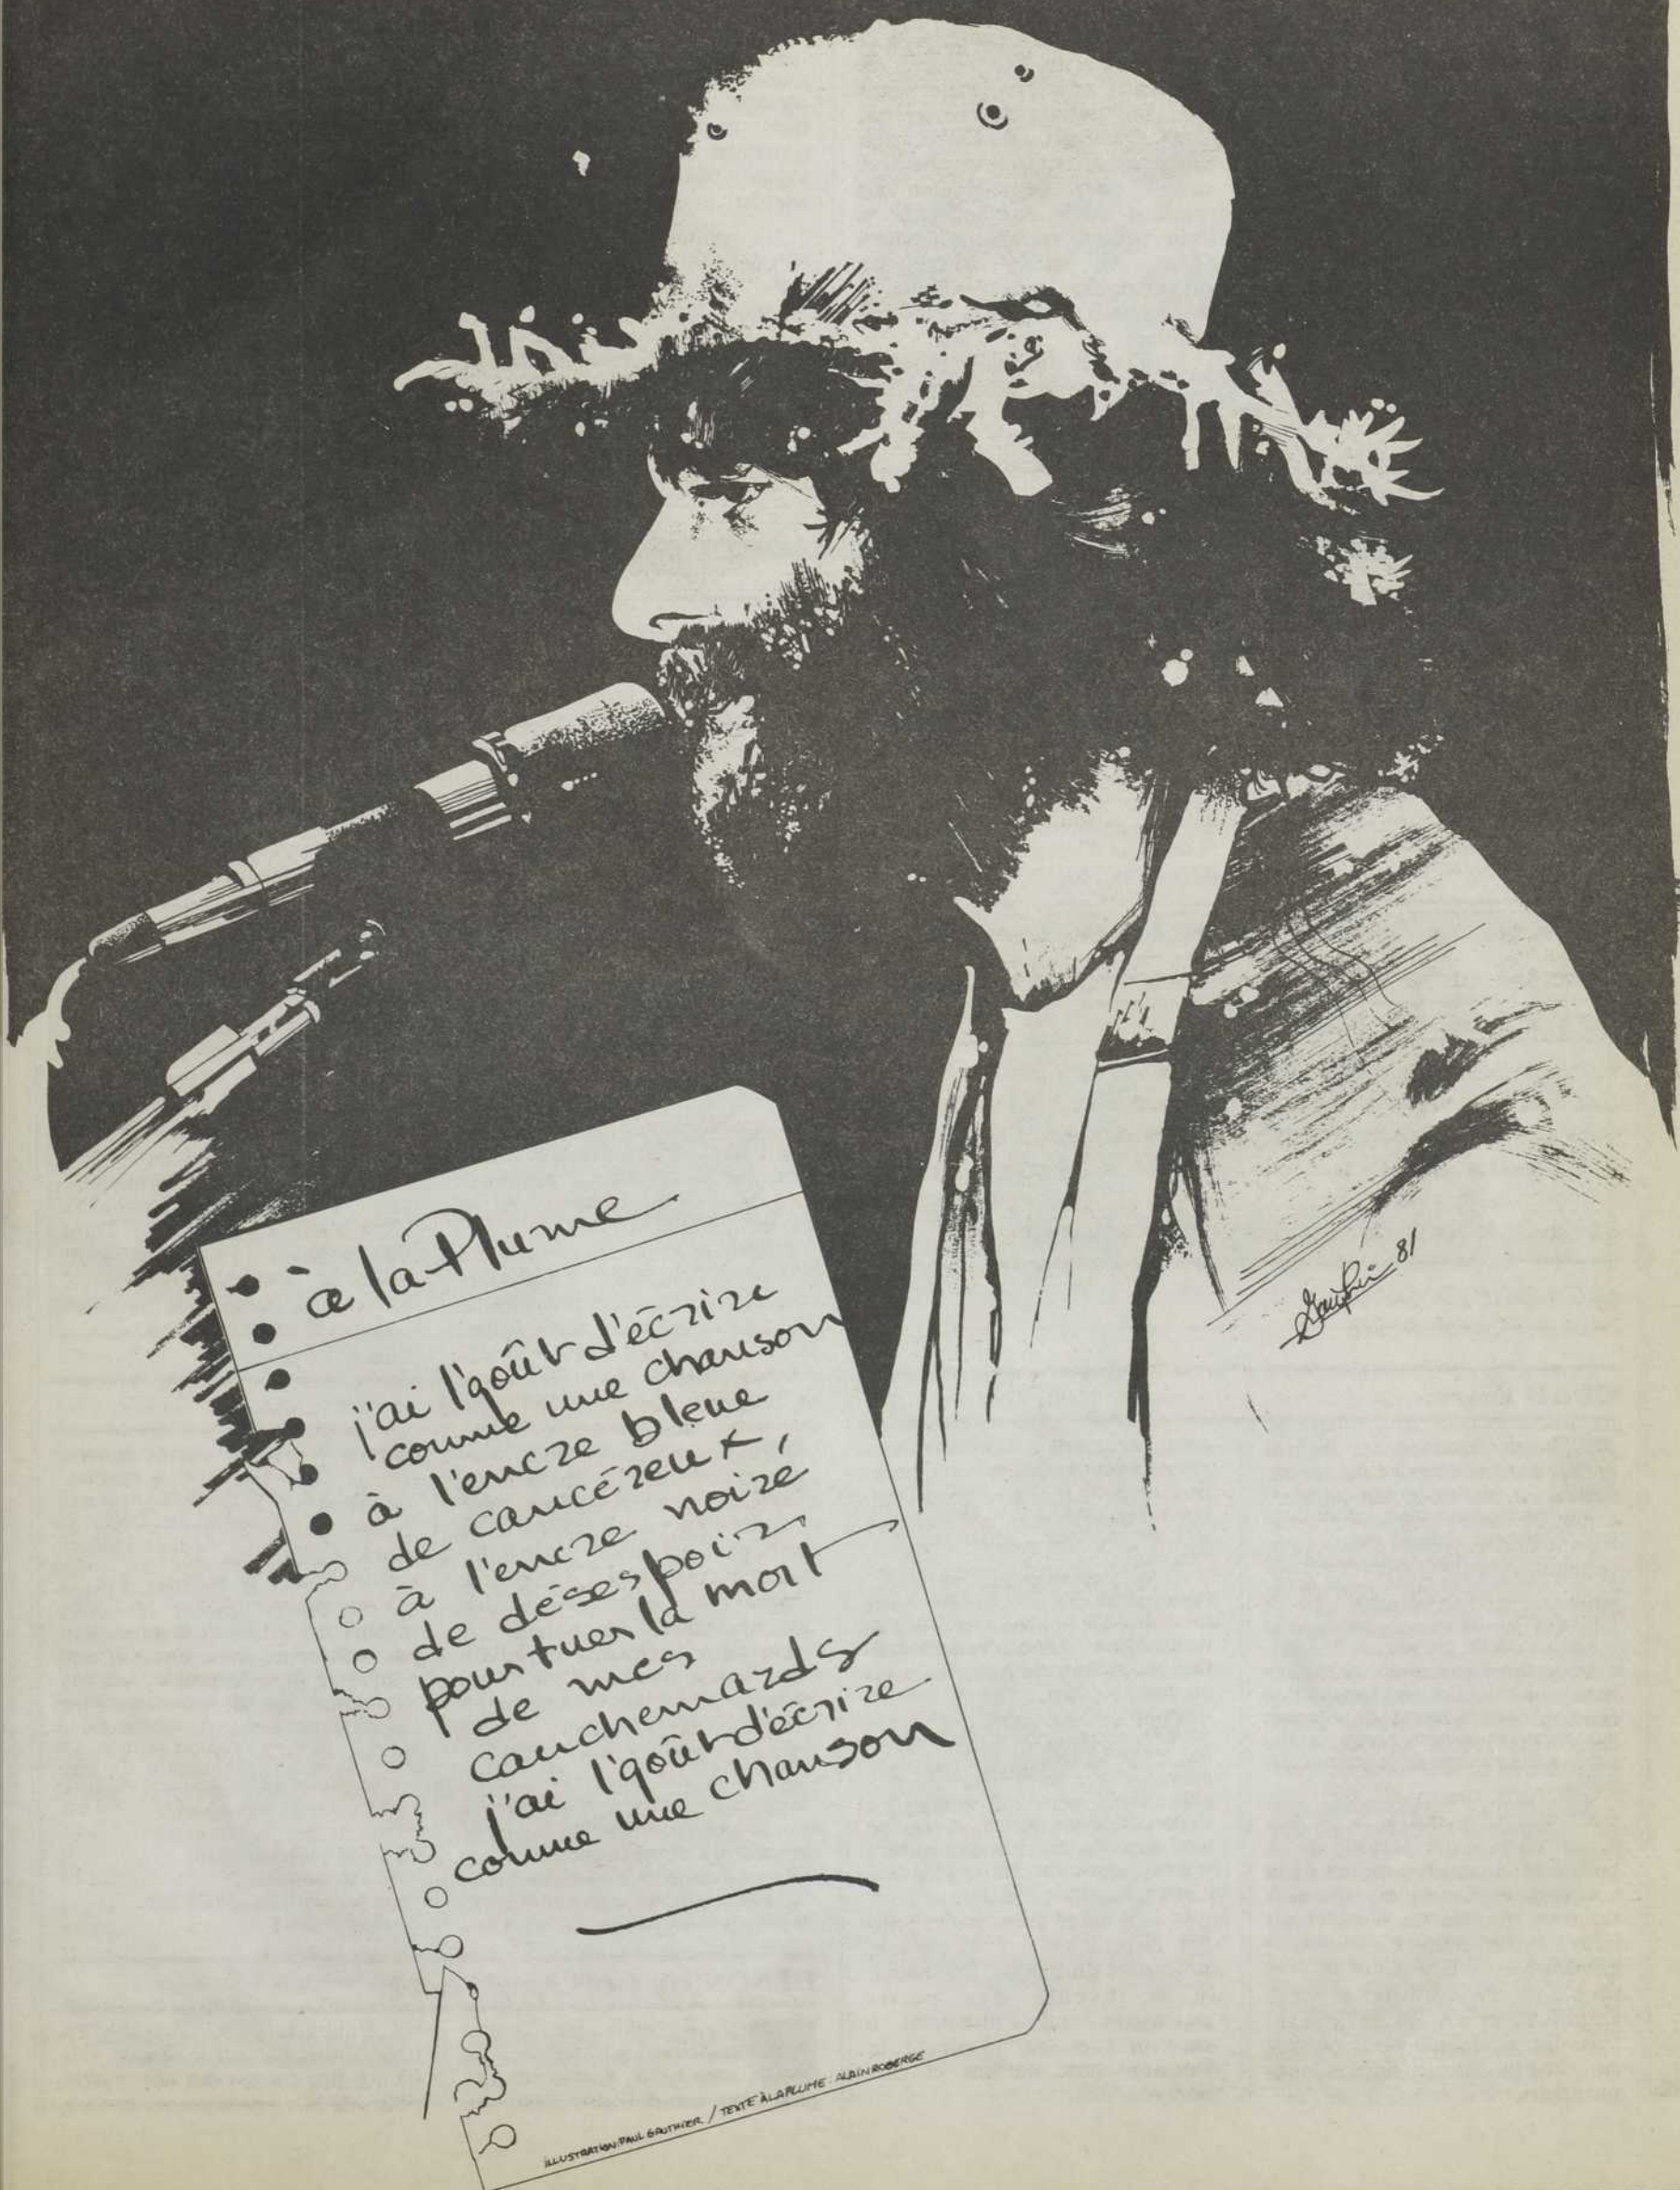 à la Plume
j'ai l'goût d'écrire
comme une chanson
à l'encre bleue
de cancéreux,
à l'encre noire
de désespoir
pour tuer la mort
de mes
cauchemards
j'ai l'goût d'écrire
comme une chanson
ILLUSTRATION: PAUL GAUTHIER / TEXTE À LA PLUME: ALAIN ROBERGE
Gauthier 81